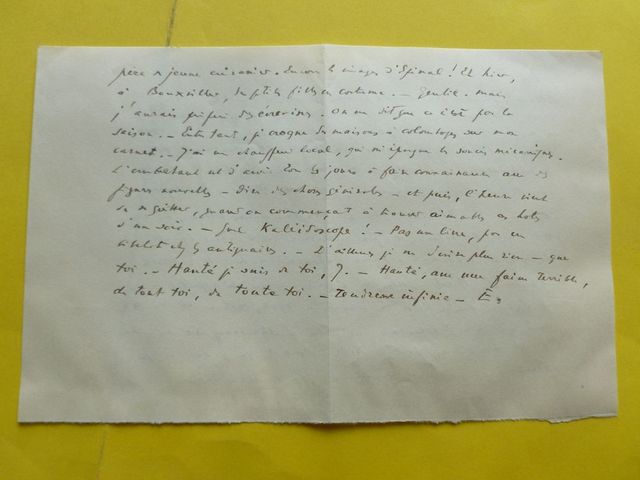 père & jeune cuisinier. Encore les images d'Epinal ! Et hier,
à Bouxwiller, de p'tites filles en costume. — gentil. mais
j'aurais préféré des écrevisses. On me dit que ce n'est pas la
saison. — Entre tant, je croque des maisons à colombages sur mon
carnet. — J'ai un chauffeur local, qui m'épargne les soucis mécaniques.
L'embêtant est d'avoir tous les jours à faire connaissance avec des
figures nouvelles — dire des choses générales — et puis, l'heure vient
de se quitter, quand on commençait à trouver aimables ces hôtes
d'un soir. — Quel Kaléidoscope ! — Pas un livre, pas un
chez les antiquaires. — D'ailleurs je ne désire plus rien — que
toi. — Hanté je suis de toi, J. — Hanté, avec une faim terrible,
de tout toi, de toute toi. — Tendresse infinie — E.